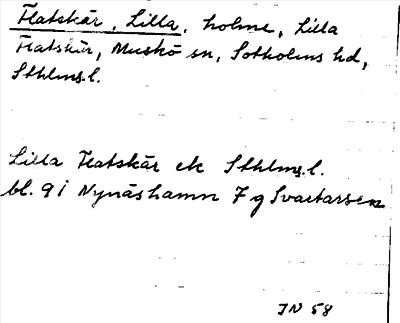 Flatskär, Lilla, holme, Lilla
Flatskär, Muskö sn, Sotholms hd,
Sthlms.l.
Lilla Flatskär ek Sthlms.l.
bl. 91 Nynäshamn 7 g Svartarsen
JN 58